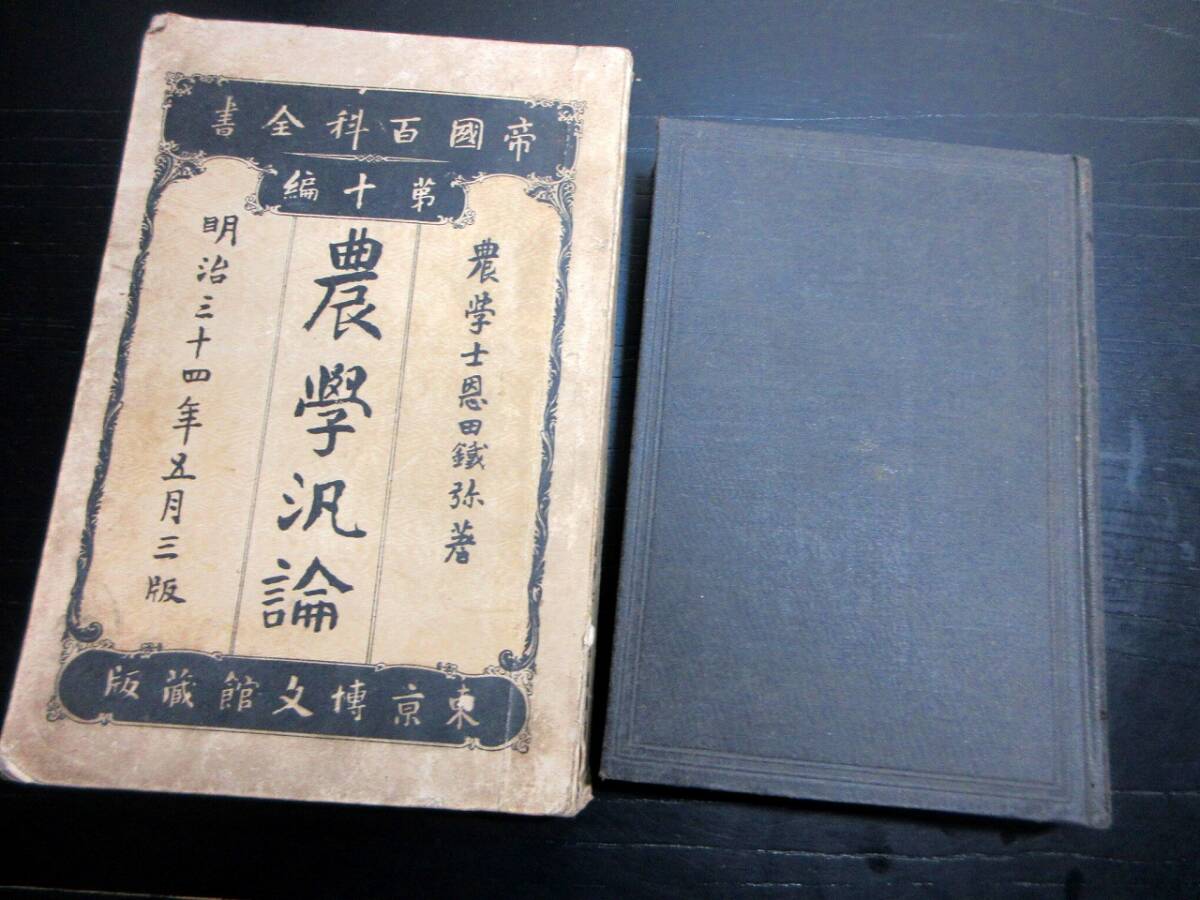 帝國百科全書
第十編
農学士恩田鐵弥著
農學汎論
明治三十四年五月三版
東京博文館蔵版